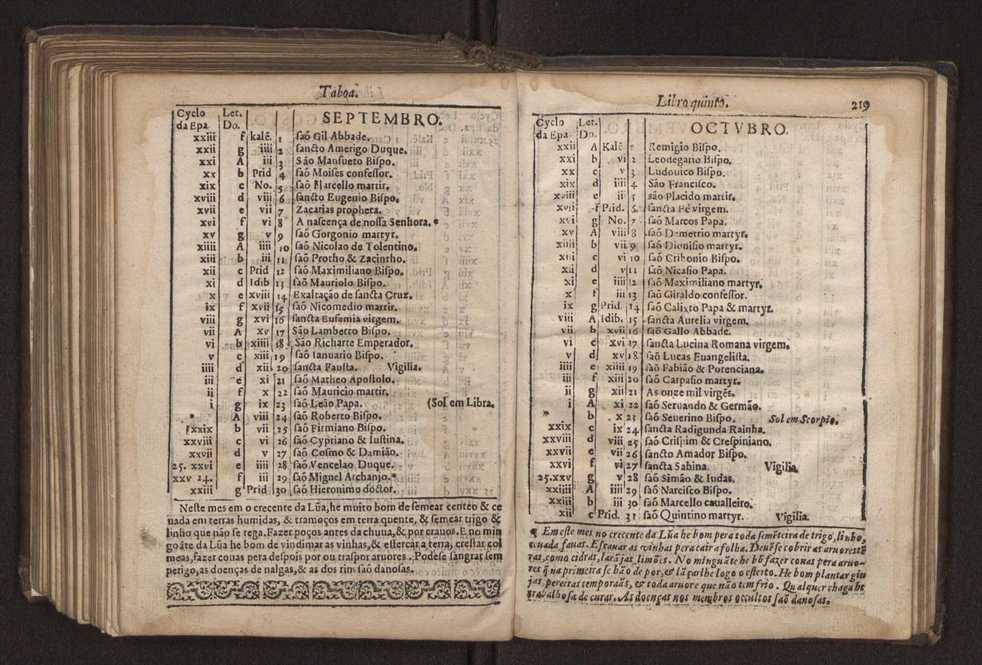 Taboa.
Cyclo Let. SEPTEMBRO.
da Epa. Do.
xxiii f kalē. 1 saõ Gil Abbade.
xxii g iiii 2 sancto Amerigo Duque.
xxi A iii 3 São Mansueto Bispo.
xx b Prid 4 saõ Moises confessor.
xix c No. 5 saõ Marcello martir.
xviii d viii 6 sancto Eugenio Bispo.
xvii e vii 7 Zacarias propheta.
xvi f vi 8 A nascença de nossa Senhora.*
xv g v 9 saõ Gorgonio martyr.
xiiii A iiii 10 saõ Nicolao de Tolentino.
xiii b iii 11 saõ Protho & Zacintho.
xii c Prid 12 saõ Maximiliano Bispo.
xi d Idib 13 saõ Mauriolo Bispo.
x e xviii 14 Exaltação de sancta Cruz.
ix f xvii 15 saõ Nicomedio martir.
viii g xvi 16 sancta Eufemia virgem.
vii A xv 17 São Lamberto Bispo.
vi b xiiii 18 São Richarte Emperador.
v c xiii 19 saõ Ianuario Bispo.
iiii d xii 20 sancta Fausta. Vigilia.
iii e xi 21 saõ Matheo Apostolo.
ii f x 22 saõ Mauricio martir.
i g ix 23 saõ Leão Papa. (Sol em Libra.
* A viii 24 saõ Roberto Bispo.
xxix b vii 25 saõ Firmiano Bispo.
xxviii c vi 26 saõ Cypriano & Iustina.
xxvii d v 27 saõ Cosmo & Damião.
25. xxvi e iiii 28 saõ Vencelao Duque.
xxv 24. f iii 29 saõ Miguel Archanjo.*
xxiii g Prid 30 saõ Hieronimo doctor.
Neste mes em o crecente da Lũa, he muito bom de semear centeo & ce
uada em terras humidas, & tramoços em terra quente, & semear trigo &
linho que não se rega. Fazer poços antes da chuua, & por crauos. E no min
goãte da Lũa he bom de vindimar as vinhas, & estercar a terra, crestar col
meas, fazer couas pera despois por ou traspor aruores. Podese sangrar sem
perigo, as doenças de nalgas, & as dos rins saõ danosas.
Libro quinto. 219
Cyclo Let. OCTVBRO.
da Epa. Do.
xxii A Kalē 1 Remigio Bispo.
xxi b vi 2 Leodegario Bispo.
xx c v 3 Ludouico Bispo.
xix d iiii 4 São Francisco.
xviii e ii 5 são Placido martir.
xvii f Prid. 6 sancta Fé virgem.
xvi g No. 7 saõ Marcos Papa.
xv A viii 8 saõ Demetrio martyr.
xiiii b vii 9 saõ Dionisio martyr.
xiii c vi 10 saõ Cribonio Bispo.
xii d v 11 saõ Nicasio Papa.
xi e iiii 12 saõ Maximiliano martyr.
x f iii 13 saõ Giraldo confessor.
ix g Prid. 14 saõ Calixto Papa & martyr.
viii A Idib. 15 sancta Aurelia virgem.
vii b xvii 16 saõ Gallo Abbade.
vi c xvi 17 sancta Lucina Romana virgem.
v d xv 18 saõ Lucas Euangelista.
iiii e xiiii 19 saõ Fabião & Potenciana.
iii f xiii 20 saõ Carpasio martyr.
ii g xii 21 As onze mil virgẽs.
i A xi 22 saõ Seruando & Germão.
* b x 23 saõ Seuerino Bispo. Sol em Scorpio.
xxix c ix 24 sancta Radigunda Rainha.
xxviii d viii 25 saõ Crispim & Crespiniano.
xxvii e vii 26 sancto Amador Bispo.
xxvi f vi 27 sancta Sabina. Vigilia.
25.xxv g v 28 saõ Simão & Iudas.
xxiiii A iiii 29 saõ Narcisco Bispo.
xxiii b iii 30 saõ Marcello caualleiro.
xxii c Prid. 31 saõ Quintino martyr. Vigilia.
¶ Em este mes no crecente da Lũa he bom pera toda semẽteira de trigo, linho,
ceuada fauas. Escauar as vinhas pera cair a folha. Deuẽse cobrir as aruores te
ras, como cidras, larãjas, limões. No minguãte he bõ fazer couas pera aruo-
res q̃ na primeira se hão de por, & lãçarlhe logo o esterco. He bom plantar gin
jas, pereiras temporaãs, & toda aruore que não tem frio. Qualquer chaga he
trabalhosa de curar. As doenças nos membros occultos saõ danosas.